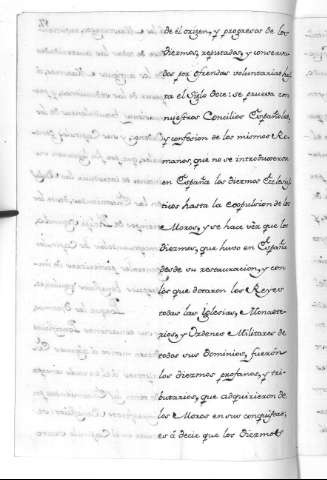 de el origen, y progresos de los
Diezmos, reputados, y conserva-
dos por ofrendas voluntarias has-
ta el Siglo doce: se prueva con
nuestros Concilios Españoles,
y confesion de los mismos Ro-
manos, que no se introduxeron
en España los diezmos Ecclesias-
ticos hasta la expulsion de los
Moros, y se hace vèr que los
Diezmos, que huvo en España
desde su restauracion, y con
los que dotaron los Reyes
todas las iglesias, Monaste-
rios, y Ordenes Militares de
todos sus Dominios, fueron
los diezmos profanos, y tri-
butarios, que adquirieron de
los Moros en sus conquistas,
es à decir que los Diezmos